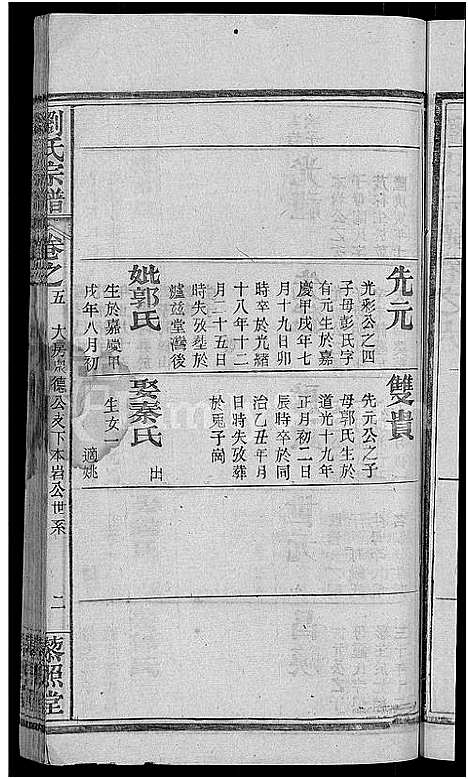 先元
光彩公之四
子母彭氏字
有元生於嘉
慶甲戌年七
月十九日卯
時卒於光緒
十八年十二
月二十五日
時失攷塟於
爐玆堂灣後
妣郭氏
生於嘉慶甲
戌年八月初
雙貴
先元公之子
母郭氏生於
道光十九年
正月初二日
辰時卒於同
治乙丑年月
日時失攷葬
於兎子崗
娶秦氏 出
生女一 適姚
劉氏宗譜
卷之五
大房崇德公支下本岩公世系
二
藜照堂